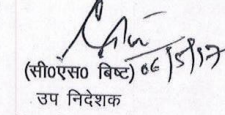 (सी०एस० बिष्ट) 06/5/17
उप निदेशक